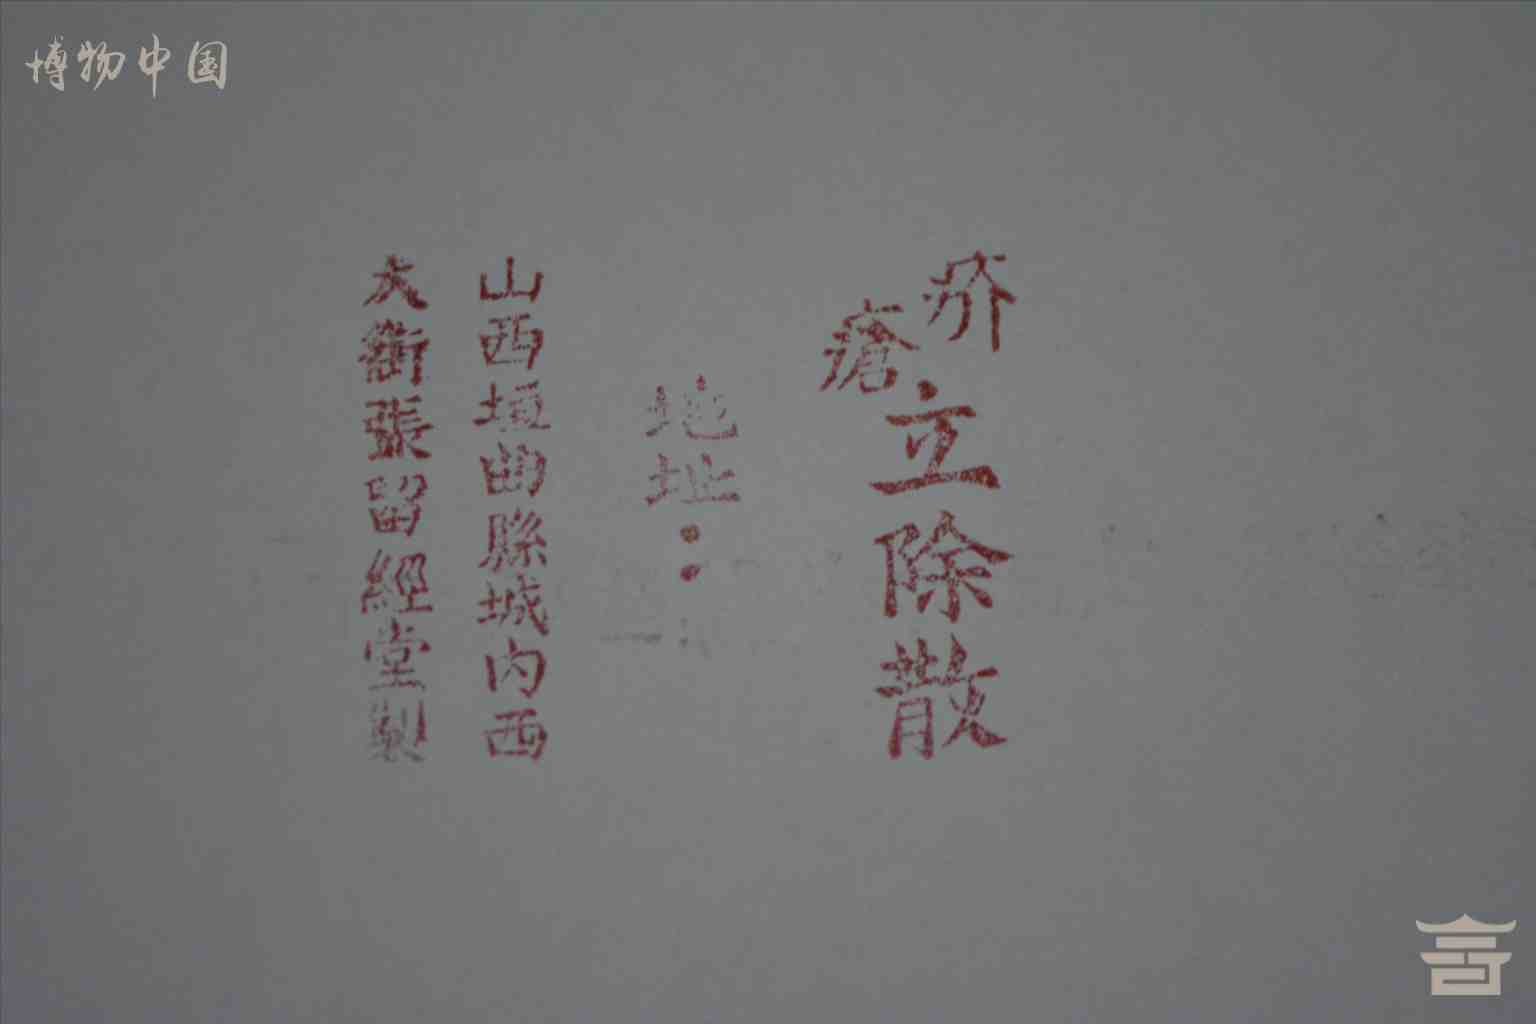 博物中国
疥
瘡
立除散
地址：
山西垣曲縣城内西
大街張留經堂製